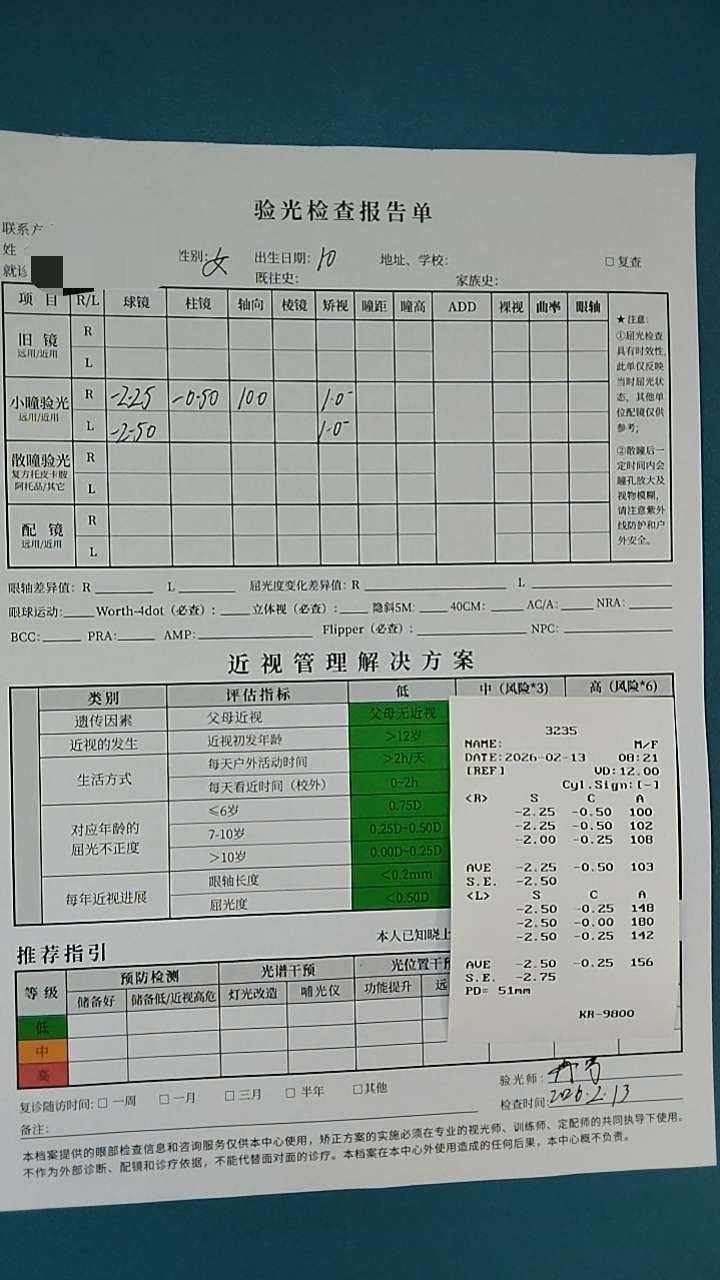 验光检查报告单
联系方
姓 性别: 女 出生日期: 10 地址、学校: □ 复查
就诊 既往史: 家族史:
项 目 R/L 球镜 柱镜 轴向 棱镜 矫视 瞳距 瞳高 ADD 裸视 曲率 眼轴
旧 镜 远用/近用 R
L
小瞳验光 远用/近用 R -2.25 -0.50 100 1.0
L -2.50 1.0
散瞳验光 复方托皮卡胺 阿托品/其它 R
L
配 镜 远用/近用 R
L
★注意:
①屈光检查
具有时效性,
此单仅反映
当时屈光状
态，其他单
位配镜仅供
参考;
②散瞳后一
定时间内会
瞳孔放大及
视物模糊,
请注意紫外
线防护和户
外安全。
眼轴差异值: R L 屈光度变化差异值: R L
眼球运动: Worth-4dot（必查）: 立体视（必查）: 隐斜5M: 40CM: AC/A: NRA:
BCC: PRA: AMP: Flipper（必查）: NPC:
近视管理解决方案
类别 评估指标 低 中（风险*3） 高（风险*6）
遗传因素 父母近视 父母无近视
近视的发生 近视初发年龄 >12岁
生活方式 每天户外活动时间 >2h/天
每天看近时间（校外） 0~2h
对应年龄的屈光不正度 ≤6岁 0.75D
7-10岁 0.25D-0.50D
>10岁 0.00D-0.25D
每年近视进展 眼轴长度 <0.2mm
屈光度 <0.50D
3235
NAME: M/F
DATE:2026-02-13 08:21
[REF] VD:12.00
Cyl.Sign:[-]
<R> S C A
-2.25 -0.50 100
-2.25 -0.50 102
-2.00 -0.25 108
AVE -2.25 -0.50 103
S.E. -2.50
<L> S C A
-2.50 -0.25 148
-2.50 -0.00 180
-2.50 -0.25 142
AVE -2.50 -0.25 156
S.E. -2.75
PD= 51mm
KR-9800
本人已知晓上
推荐指引
等 级 预防检测 光谱干预 光位置干预
储备好 储备低/近视高危 灯光改造 哺光仪 功能提升 远
低
中
高
复诊随访时间: □ 一周 □ 一月 □ 三月 □ 半年 □其他
验光师:
检查时间: 2026.2.13
备注:
本档案提供的眼部检查信息和咨询服务仅供本中心使用，矫正方案的实施必须在专业的视光师、训练师、定配师的共同执导下使用。
不作为外部诊断、配镜和诊疗依据，不能代替面对面的诊疗。本档案在本中心外使用造成的任何后果，本中心概不负责。